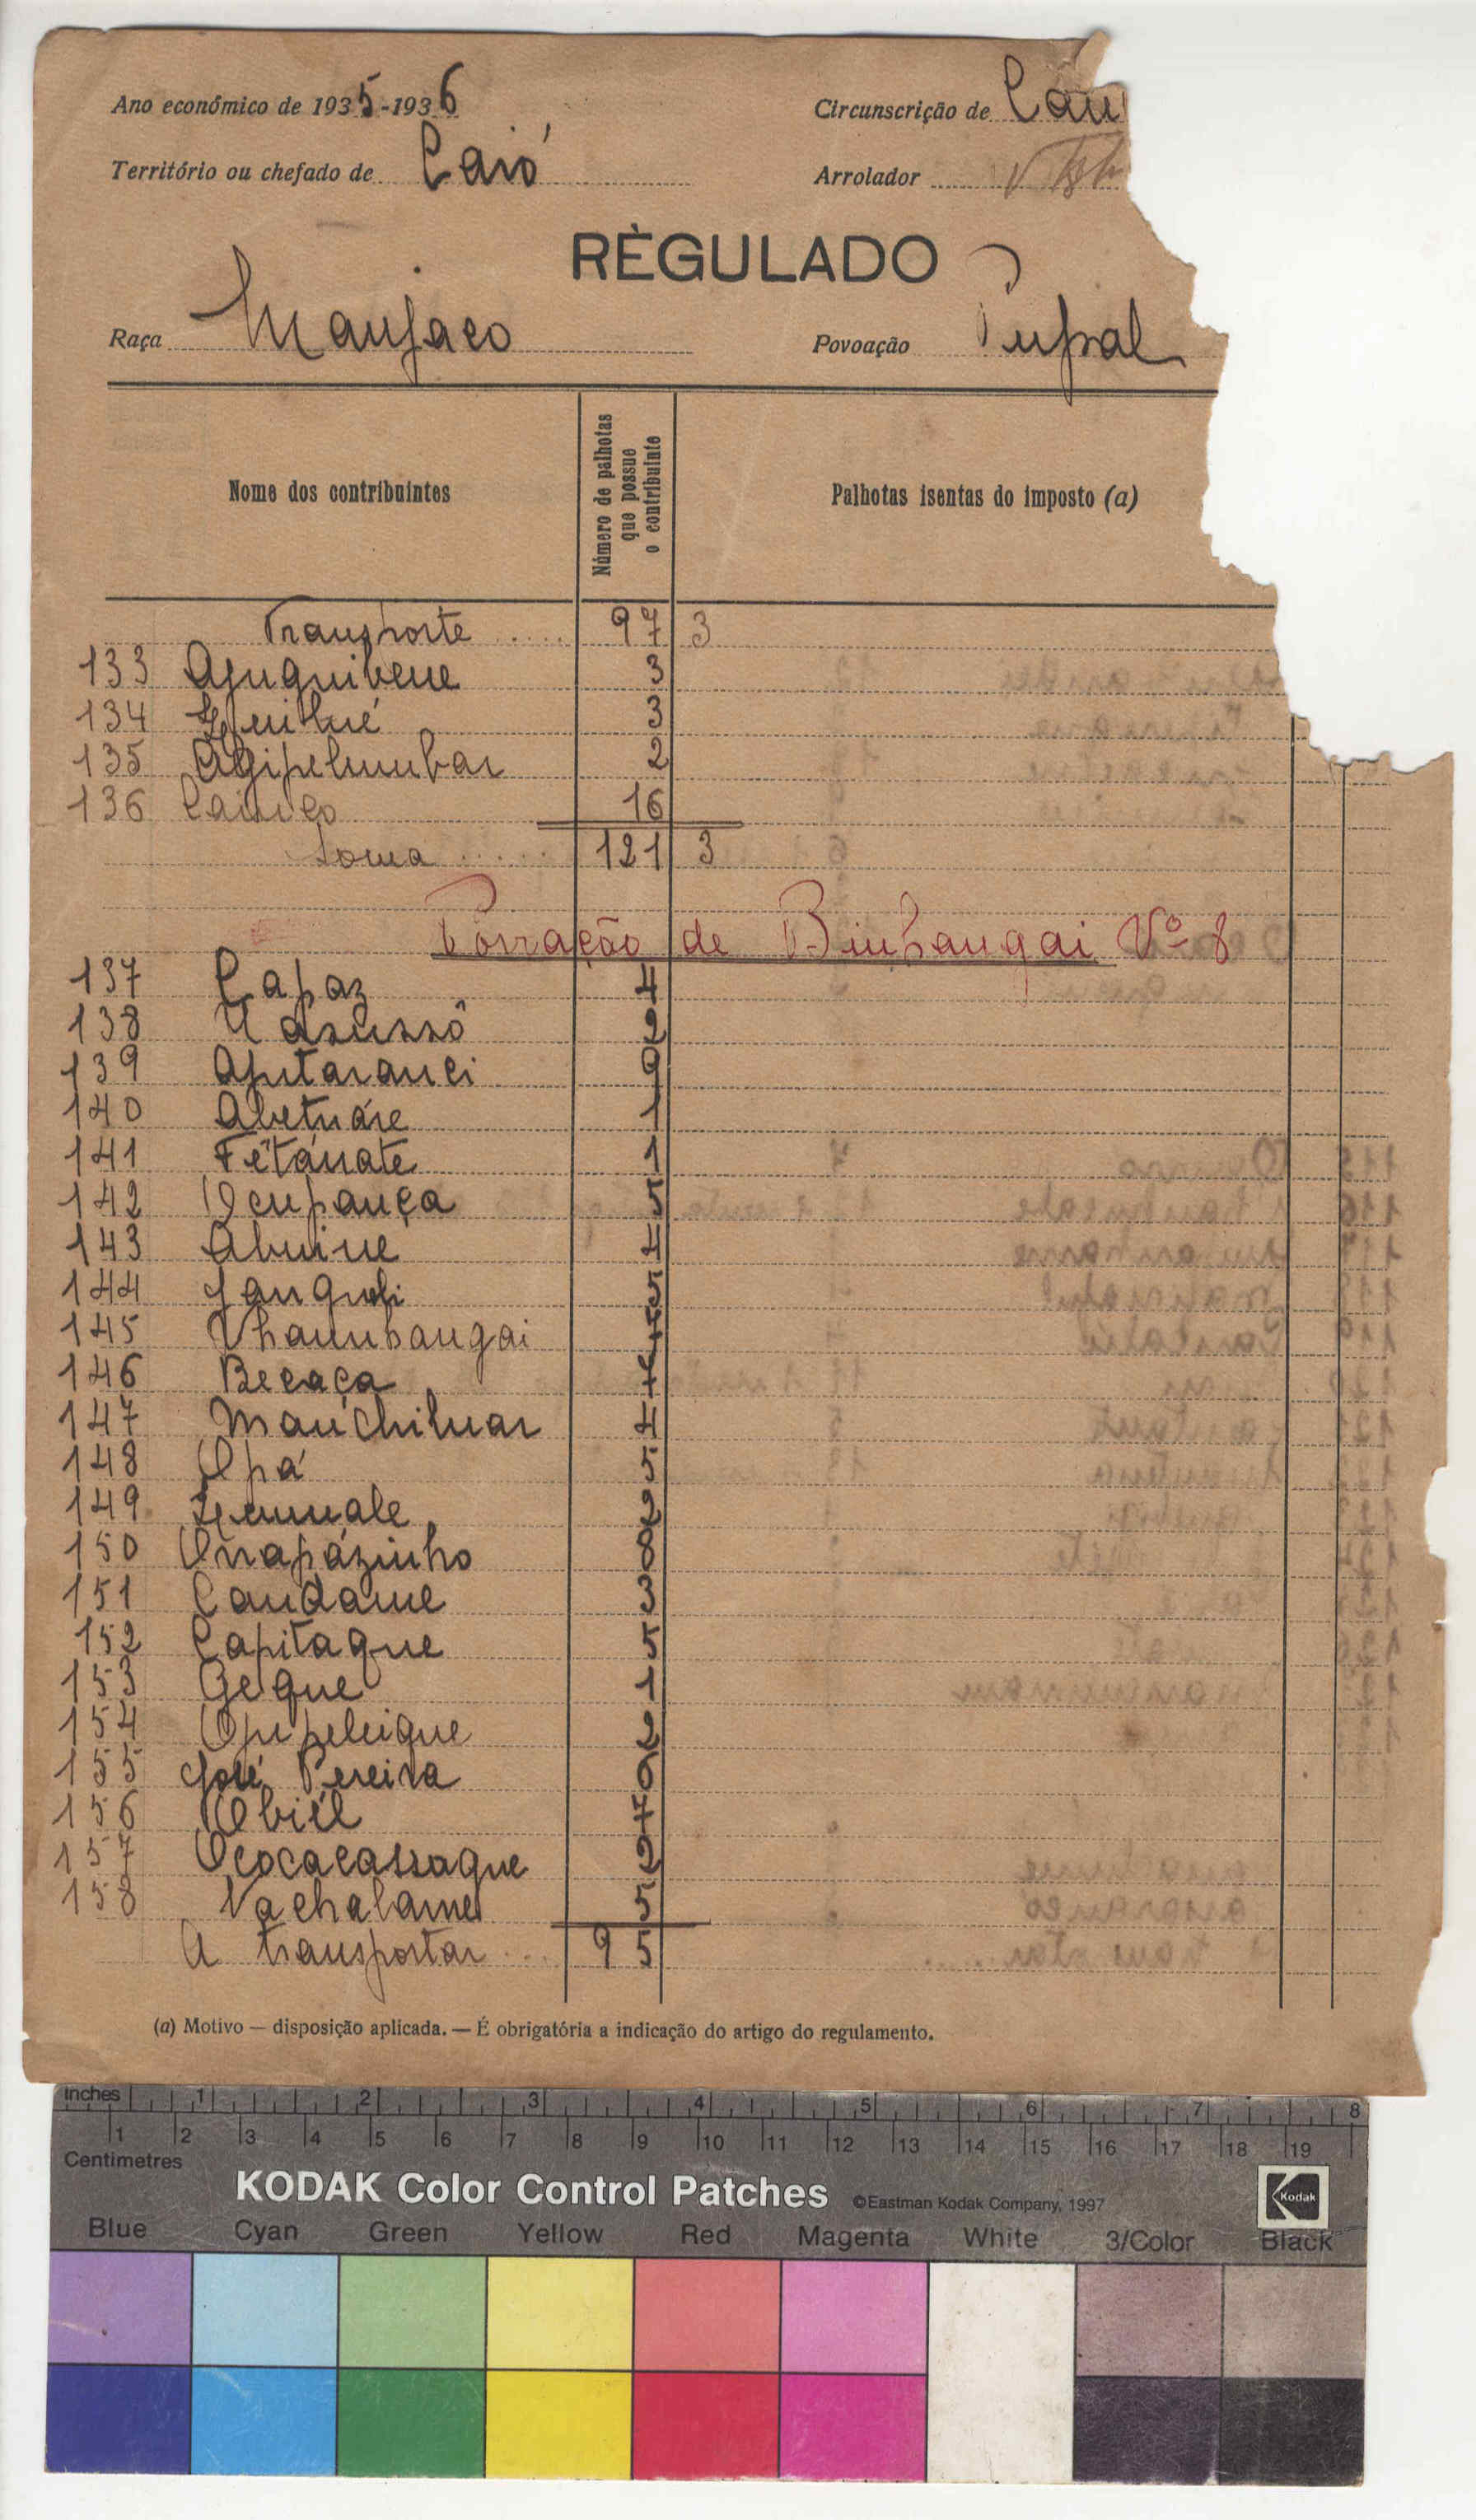 Ano económico de 1935-1936
Circunscrição de Cau
Território ou chefado de Caió
Arrolador
RÈGULADO
Raça Manjaco
Povoação Pupal
Nome dos contribuintes
Número de palhotas que possue o contribuinte
Palhotas isentas do imposto (a)
Transporte ..... 97 3
133 Ajuquivene 3
134 3
135 Agipelumbar 2
136 Cainço 16
Soma ..... 121 3
Povoação de Binhangai Nº 8
137 Capaz 4
138 2
139 Aputaranci 9
140 Abetuáre 1
141 Fetánate 1
142 Ocupança 5
143 Abuine 4
144 5
145 Nhambangai
146 Becaça
147 Mauchiluar 4
148 Opá 5
149 2
150 Onapázinho 8
151 Candame 3
152 Capitaque 5
153 Geque 1
154 Opipeleique 2
155 José Pereira 6
156 Obiél 7
157 Ococacassaque 2
158 Nachalame 5
A transportar ... 95
(a) Motivo — disposição aplicada. — É obrigatória a indicação do artigo do regulamento.
Inches 1 2 3 4 5 6 7 8
1 2 3 4 5 6 7 8 9 10 11 12 13 14 15 16 17 18 19
Centimetres
KODAK Color Control Patches ©Eastman Kodak Company, 1997 Kodak
Blue Cyan Green Yellow Red Magenta White 3/Color Black